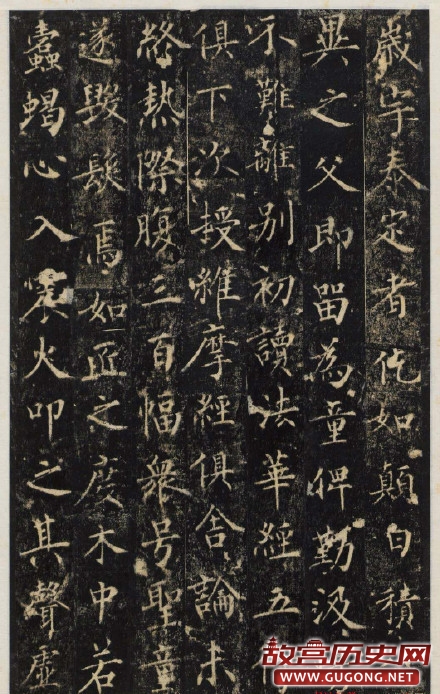 歲宇泰定者仡如顛白積
異之父即留為童俾勤汲
不難離別初讀法華經五
俱下次授維摩經俱舍論未
終熱際腹三百幅衆号聖童
遂毀髮焉如匠之度木中若
蠹蝎心入火叩之其聲虛
故宫历史网
WWW.GUGONG.NET